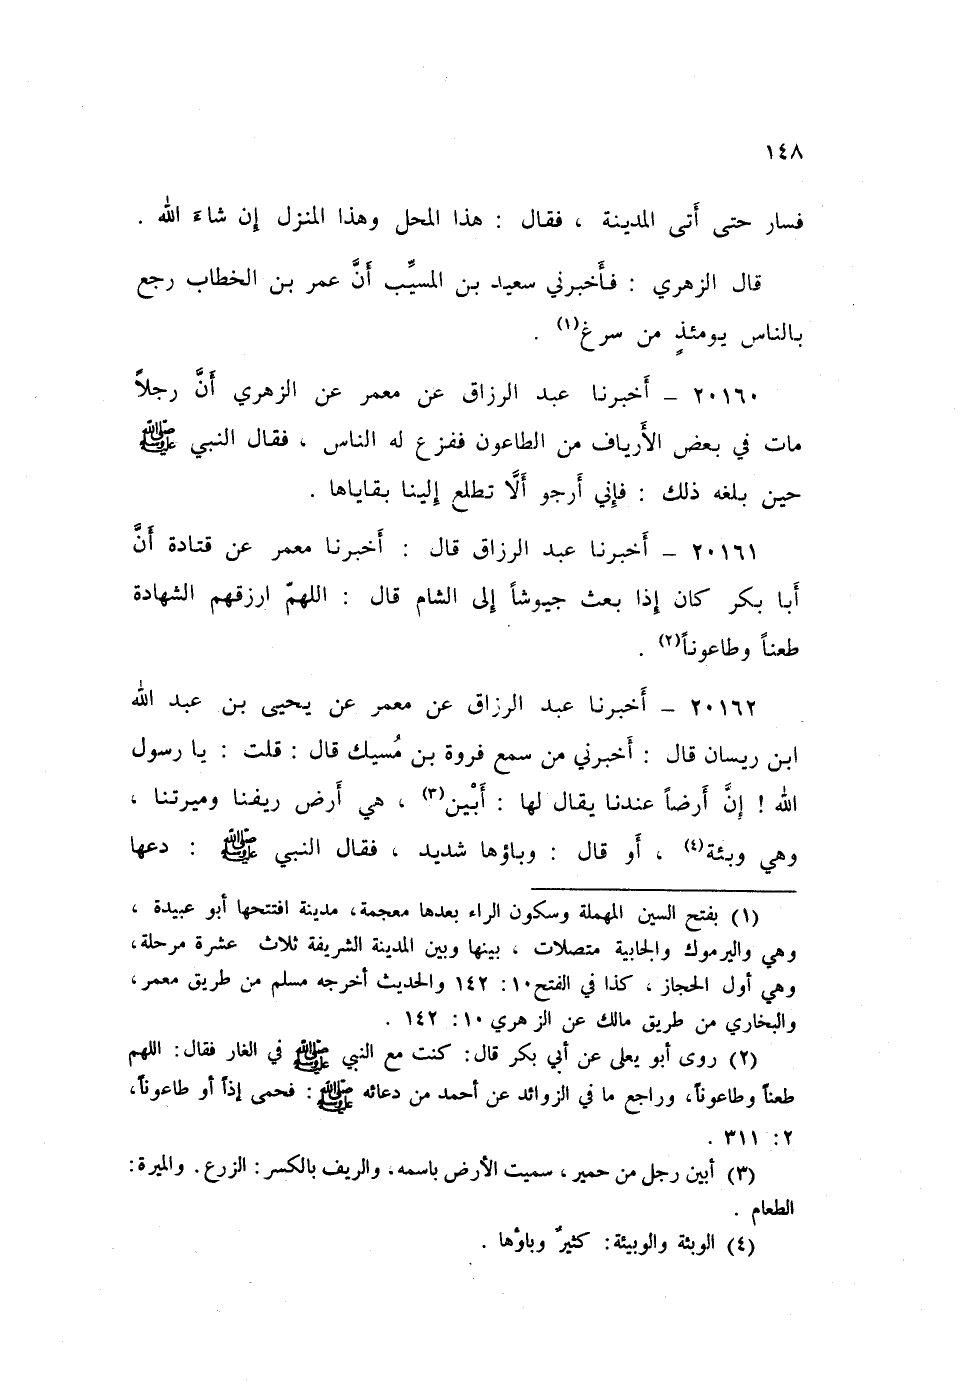 ١٤٨
فسار حتى أَتى المدينة ، فقال : هذا المحل وهذا المنزل إِن شاءَ الله .
قال الزهري : فأَخبرني سعيد بن المسيِّب أَنَّ عمر بن الخطاب رجع
بالناس يومئذٍ من سرغ(١) .
٢٠١٦٠ – أَخبرنا عبد الرزاق عن معمر عن الزهري أَنَّ رجلاً
مات في بعض الأَرياف من الطاعون ففزع له الناس ، فقال النبي ﷺ
حين بلغه ذلك : فإني أَرجو أَلَّا تطلع إلينا بقاياها .
٢٠١٦١ – أَخبرنا عبد الرزاق قال : أَخبرنا معمر عن قتادة أَنَّ
أَبا بكر كان إِذا بعث جيوشاً إِلى الشام قال : اللهمّ ارزقهم الشهادة
طعناً وطاعوناً(٢) .
٢٠١٦٢ – أَخبرنا عبد الرزاق عن معمر عن يحيى بن عبد الله
ابن ريسان قال : أَخبرني من سمع فروة بن مُسيك قال : قلت : يا رسول
الله ! إِنَّ أَرضاً عندنا يقال لها : أَبْين(٣) ، هي أَرض ريفنا وميرتنا ،
وهي وبئة(٤) ، أَو قال : وباؤها شديد ، فقال النبي ﷺ : دعها
(١) بفتح السين المهملة وسكون الراء بعدها معجمة، مدينة افتتحها أبو عبيدة ،
وهي واليرموك والجابية متصلات ، بينها وبين المدينة الشريفة ثلاث عشرة مرحلة،
وهي أول الحجاز ، كذا في الفتح ١٠: ١٤٢ والحديث أخرجه مسلم من طريق معمر،
والبخاري من طريق مالك عن الزهري ١٠: ١٤٢ .
(٢) روى أبو يعلى عن أبي بكر قال: كنت مع النبي ﷺ في الغار فقال: اللهم
طعناً وطاعوناً، وراجع ما في الزوائد عن أحمد من دعائه ﷺ : فحمى إذاً أو طاعوناً،
٢: ٣١١ .
(٣) أبين رجل من حمير ، سميت الأرض باسمه. والريف بالكسر: الزرع. والميرة:
الطعام .
(٤) الوبئة والوبيئة: كثيرٌ وباؤها .